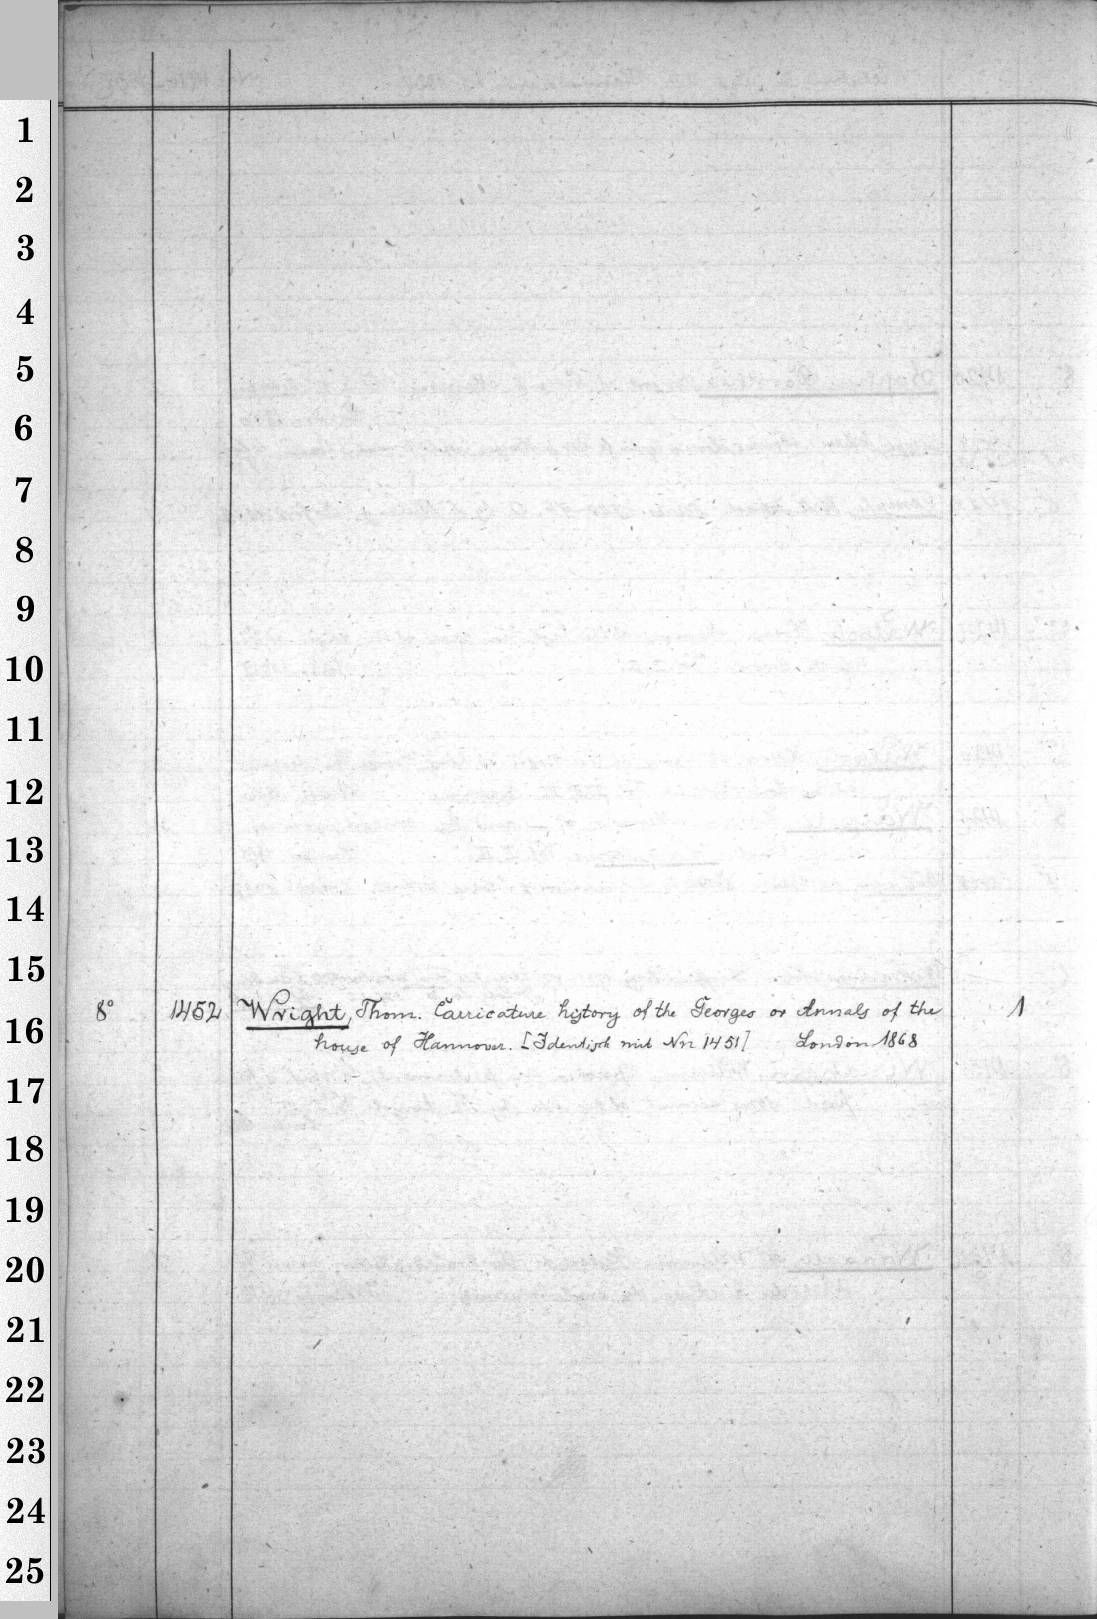 1
2
3
4
5
6
7
8
9
10
11
12
13
14
15
8° 1452 Wright, Thom. Carricature history of the Georges or Annals of the 1
16
house of Hannover. [Identisch mit Nr. 1451] London 1868
17
18
19
20
21
22
23
24
25